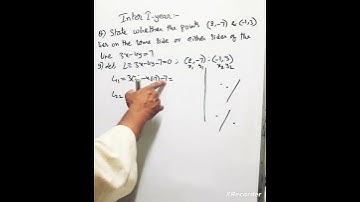 Inter I-year:-
Q) State whether the points (2,-7) & (-1,3)
lies on the same side or either sides of the
line 3x-4y=7
S) let L≡3x-4y-7=0; (2,-7) (-1,3)
x₁ y₁ x₂ y₂
L₁₁=3( -7=
L₂₂
XRecorder